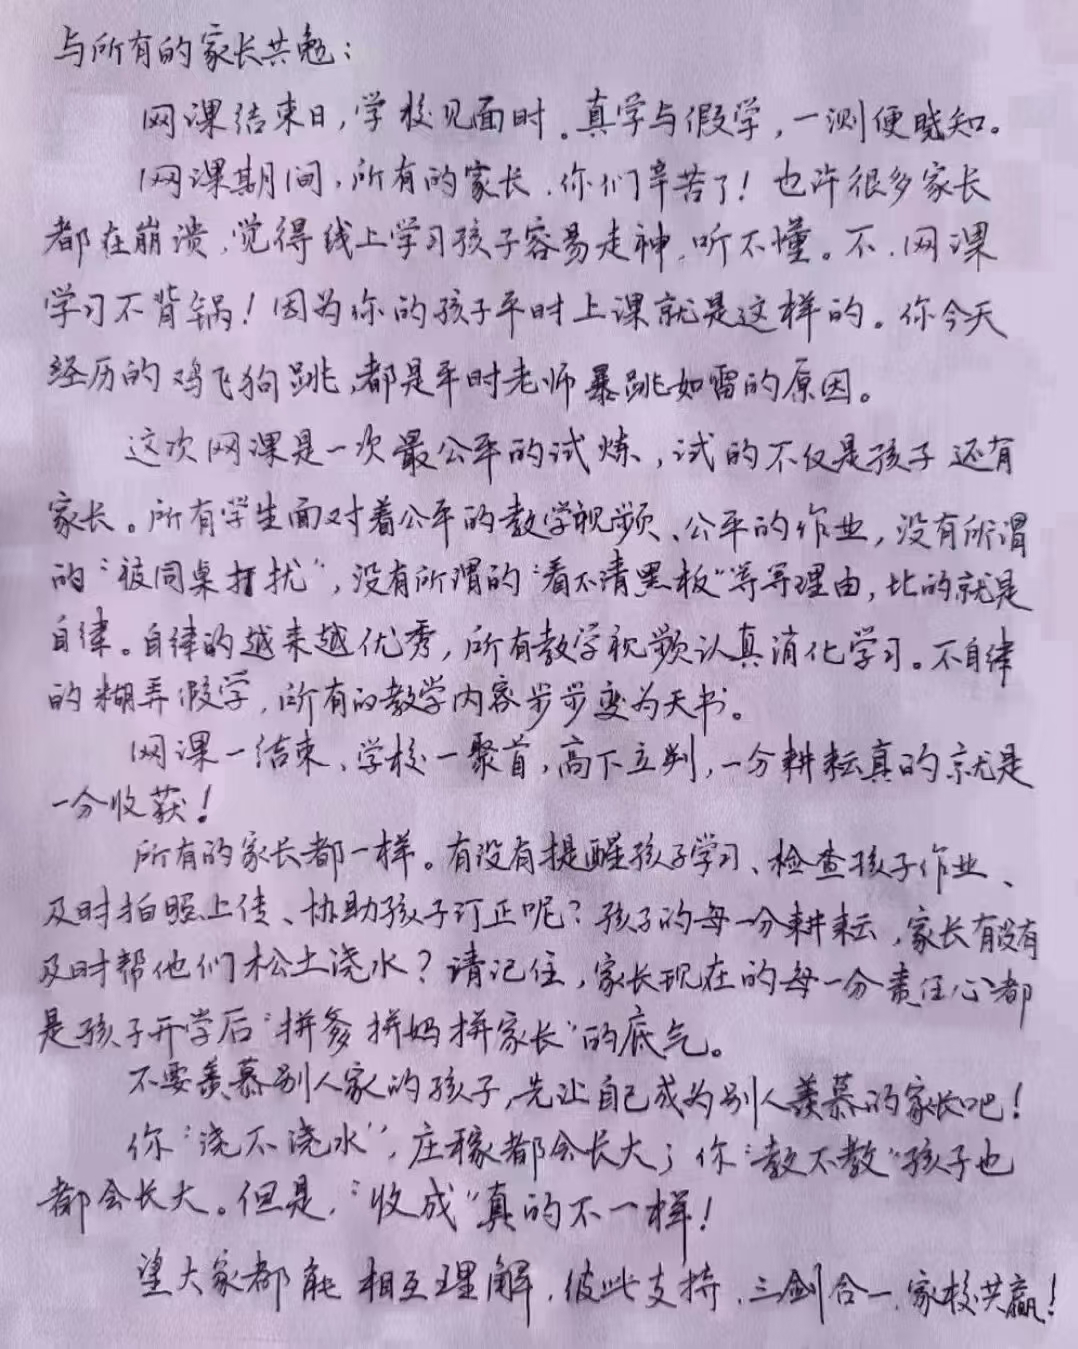 与所有的家长共勉：
网课结束日，学校见面时。真学与假学，一测便晓知。
网课期间，所有的家长，你们辛苦了！也许很多家长
都在崩溃，觉得线上学习孩子容易走神，听不懂。不，网课
学习不背锅！因为你的孩子平时上课就是这样的。你今天
经历的鸡飞狗跳，都是平时老师暴跳如雷的原因。
这次网课是一次最公平的试炼，试的不仅是孩子还有
家长。所有学生面对着公平的教学视频、公平的作业，没有所谓
的“被同桌打扰”，没有所谓的“看不清黑板”等等理由，比的就是
自律。自律的越来越优秀，所有教学视频认真消化学习。不自律
的糊弄假学，所有的教学内容步步变为天书。
网课一结束，学校一聚首，高下立判，一分耕耘真的就是
一分收获！
所有的家长都一样。有没有提醒孩子学习、检查孩子作业、
及时拍照上传、协助孩子订正呢？孩子的每一分耕耘，家长有没有
及时帮他们松土浇水？请记住，家长现在的每一分责任心都
是孩子开学后“拼爹拼妈拼家长”的底气。
不要羡慕别人家的孩子，先让自己成为别人羡慕的家长吧！
你“浇不浇水”，庄稼都会长大；你“教不教”孩子也
都会长大。但是，“收成”真的不一样！
望大家都能相互理解，彼此支持，三剑合一，家校共赢！